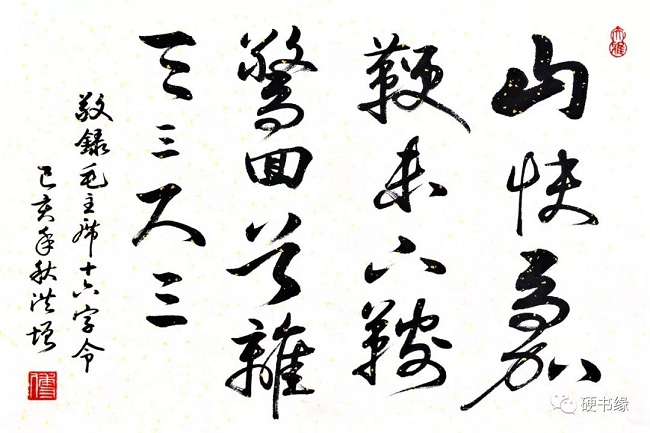 山快馬加
鞭未下鞍
驚回首離
天三尺三
敬録毛主席十六字令
己亥年秋洪增
硬书缘